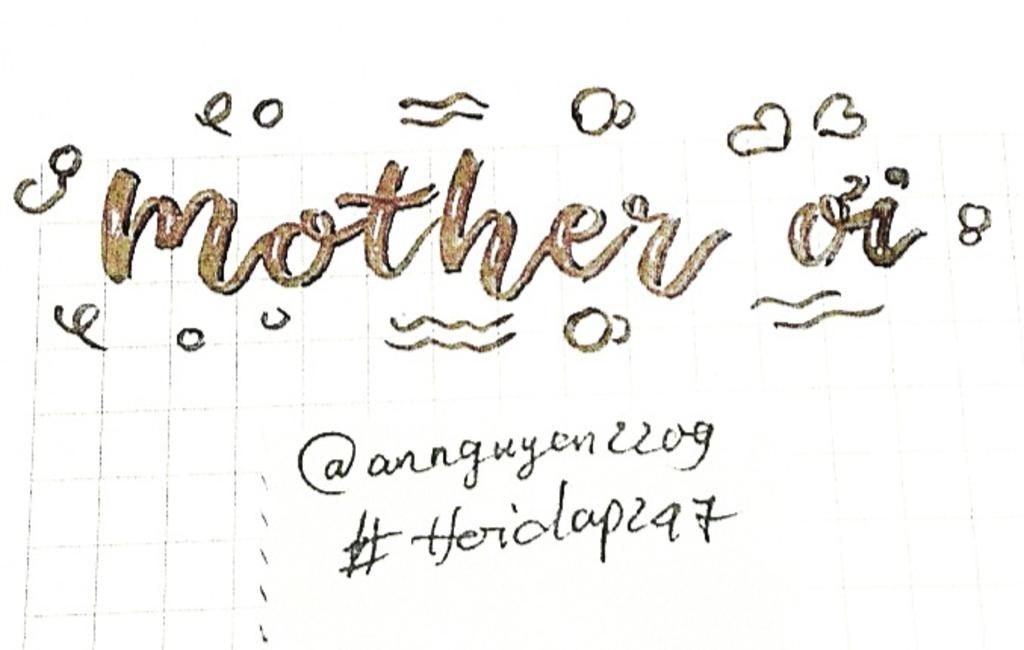 mother ơi
@annguyen2209
#Hoidap247